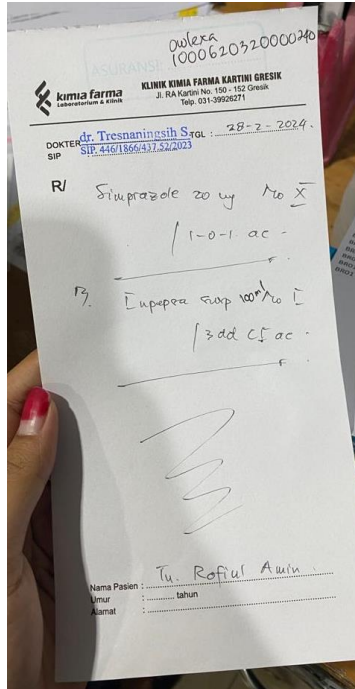 owlexa
1000620320000240
ASURANSI
kimia farma
Laboratorium & Klinik
KLINIK KIMIA FARMA KARTINI GRESIK
Jl. RA Kartini No. 150 - 152 Gresik
Telp. 031-39926271
DOKTER dr. Tresnaningsih S. TGL : 28-2-2024.
SIP : SIP. 446/1866/437.52/2023
R/ Simprazole 20 mg No X
1-0-1 ac
R. Inpepsa susp 100ml No I
3 dd C I ac
Nama Pasien : Tn. Rofiul Amin
Umur : ......... tahun
Alamat :